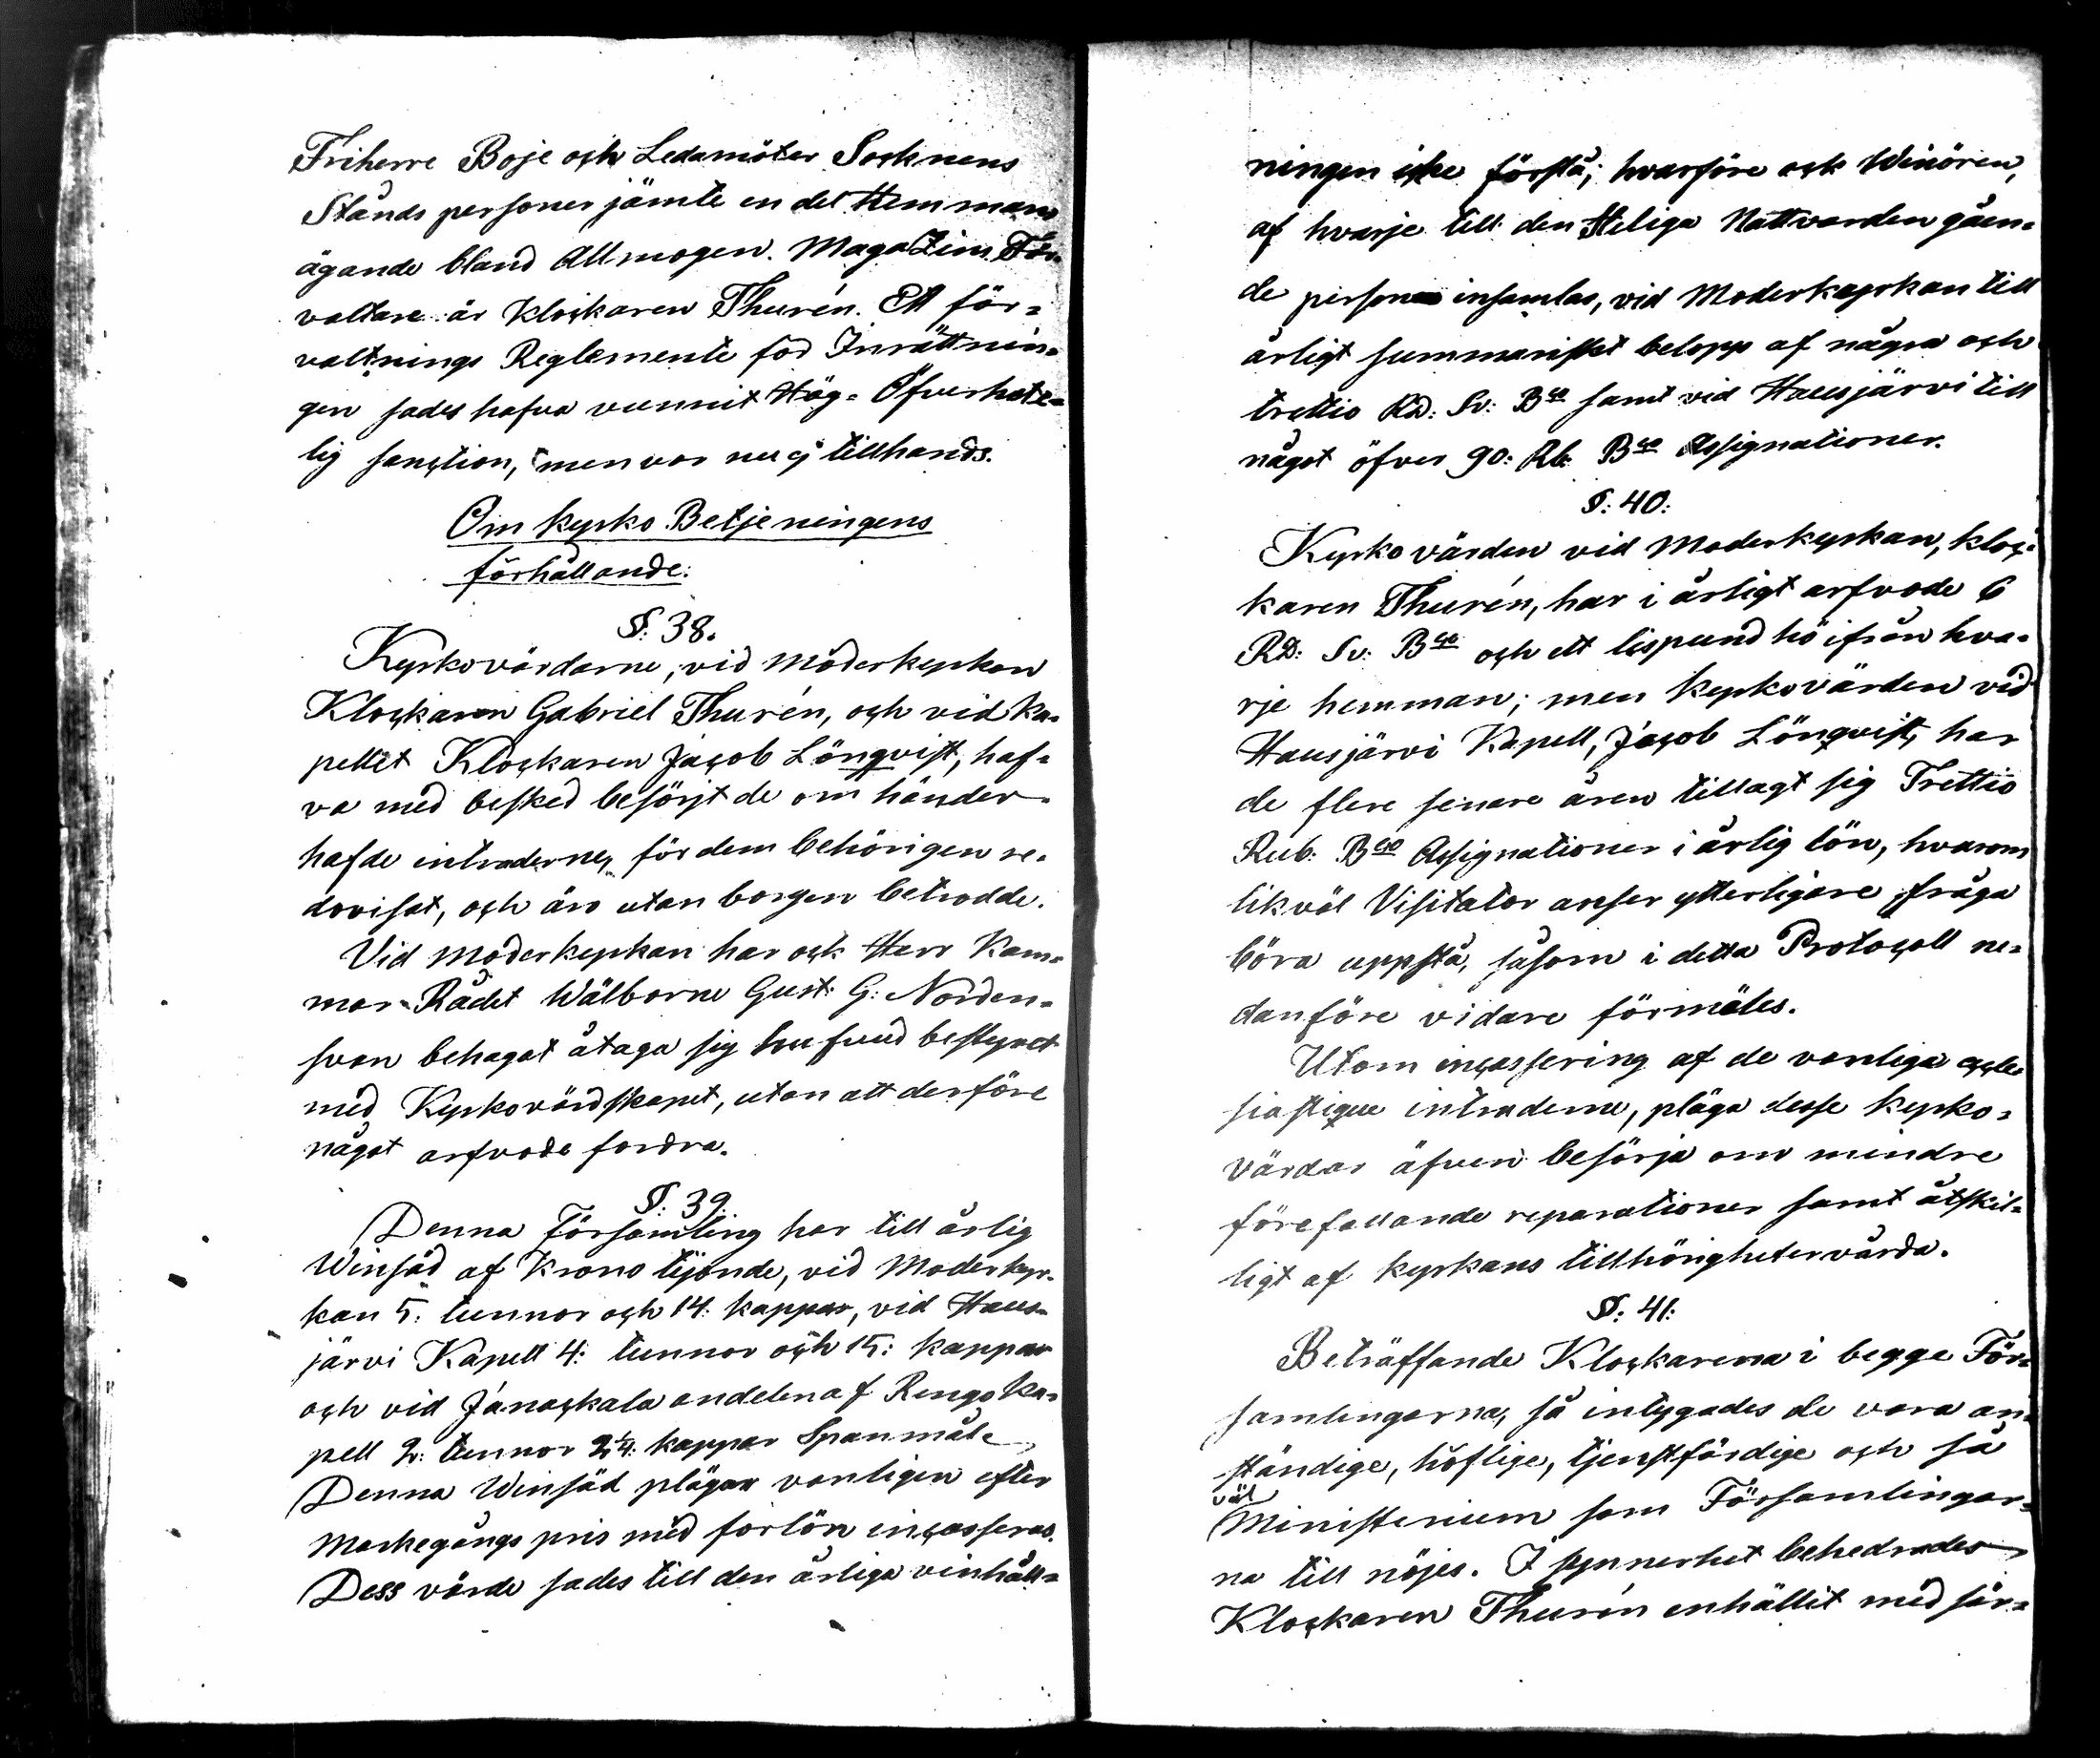 Friherre Boje och Ledamöter Socknens
Stånds personer jämte en del Hemmans
ägande bland Allmogen. MagaZins För-
valtare är klockaren Thurén. Ett för=
valtnings Reglemente föd Inrättnin-
gen sades hafva vunnit Hög= Öfverhete=
lig sanction, men var nu ej tillhands.
Om kyrko Betjeningens
förhållande:
§: 38.
Kyrkovärdarne, vid Moderkyrkan
Klockaren Gabriel Thurén, och vid ka-
pellet Klockaren Jacob Lönqvist, haf=
va med besked besörjt de om händer-
hafde intraderne, för dem behörigen re-
dovisat, och äro utan borgen betrodde.
Vid Moderkyrkan har ock Herr Kam-
mar-Rådet Wälborne Gust: G: Norden=
svan behagat åtaga sig hufvud bestyret
med Kyrkovärdskapet, utan att derföre
något arfvode fordra.
§: 39.
Denna Församling har till årlig
Winsäd af Krono tijonde, vid Moderkyr-
kan 5: tunnor och 14: kappar, vid Haus-
järvi Kapell 4: tunnor och 15: kappar
och vid Janackala andelen af Rengo ka-
pell 2: tunnor 2¼: kappar Spanmål.
Denna Winsäd plägar vanligen efter
Markegångs pris med forlön incasseras.
Dess värde sades till den årliga vinhåll=
ningen icke förstå; hvarföre ock Winören,
af hvarje till den Heliga Nattvarden gåen=
de person insamlas, vid Moderkyrkan till
årligt summariskt belopp af några och
trettio Rd: Sv: Bco samt vid Hausjärvi till
något öfver 90: Rb: Bco Assignationer.
§: 40:
Kyrkovärden vid Moderkyrkan, kloc-
karen Thurén, har i årligt arfvode 6
RD: Sv: Bco och ett lispund hö ifrån hva-
rje hemman; men kyrkovärden vid
Hausjärvi Kapell, Jacob Lönqvist, har
de flere senare åren tillagt sig Trettio
Rub: Bco Assignationer i årlig lön, hvarom
likväl Visitator anser ytterligare fråga
böra uppstå, såsom i detta Protocoll ne=
danföre vidare förmäles.
Utom incassering af de vanliga eccle
siastique intraderne, pläga desse kyrko=
värdar äfven besörja om mindre
förefallande reparationer samt åtskil=
ligt af kyrkans tillhörigheter vårda.
§: 41:
Beträffande Klockarena i begge För=
samlingarna, så intygades de vara an-
ständige, höflige, tjenstfärdige och så
väl
Ministerium som Församlingar=
na till nöjes. I synnerhet behedrades
Klockaren Thurén enhällit med sär=